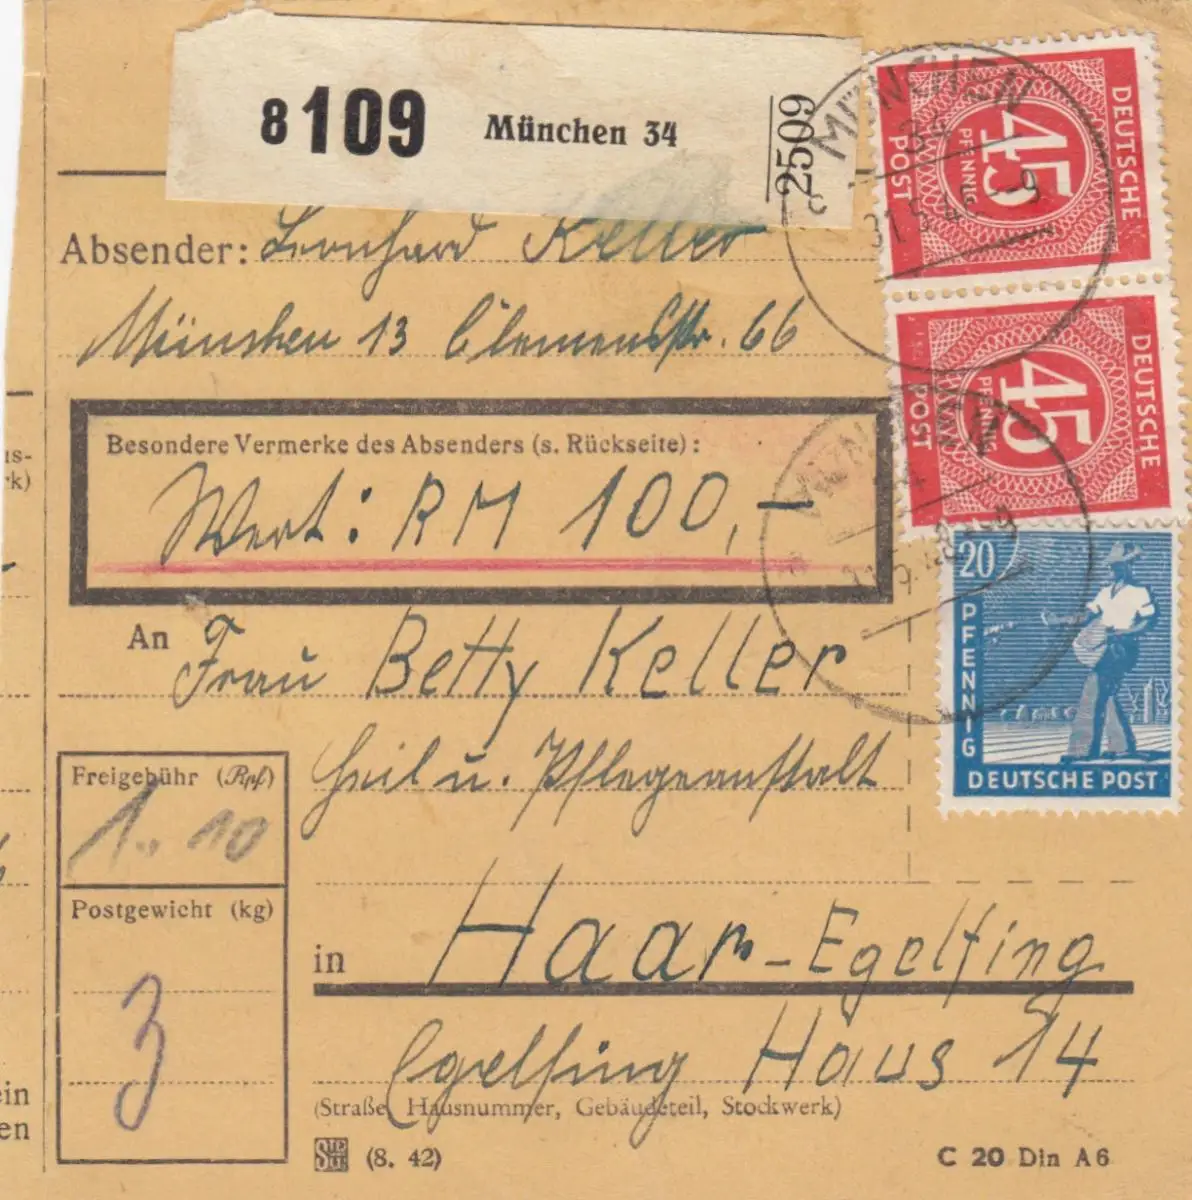 8 109 München 34 2509
MÜNCHEN
34
31.5.48 - 9
DEUTSCHE POST
45 PFENNIG
DEUTSCHE POST
45 PFENNIG
Absender: Leonhard Keller
München 13 Clemensstr. 66
Besondere Vermerke des Absenders (s. Rückseite):
Wert: RM 100,-
20 PFENNIG
DEUTSCHE POST
An Frau Betty Keller
Heil u. Pflegeanstalt
Freigebühr (Rpf)
1.. 10
Postgewicht (kg)
3
in Haar-Egelfing
Egelfing Haus 14
(Straße, Hausnummer, Gebäudeteil, Stockwerk)
(8. 42)
C 20 Din A 6
us-
rk)
ein
en